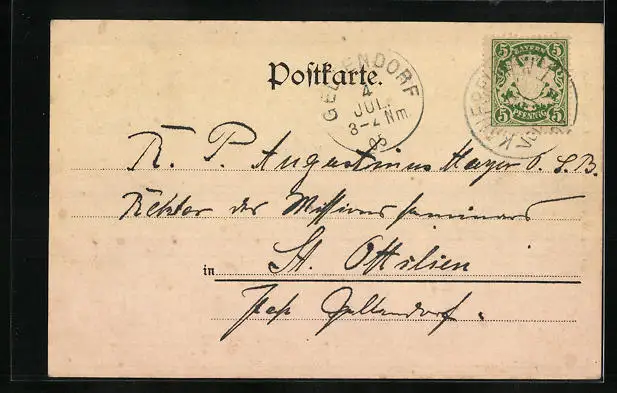 Postkarte.
GELTENDORF
4
JUL.
3-4 Nm.
05
BAYERN
5 5
5 5
PFENNIG
R. P. Augustinus Mayer O. S. B.
Rektor des Missionsseminars
in St. Ottilien
Post Geltendorf.